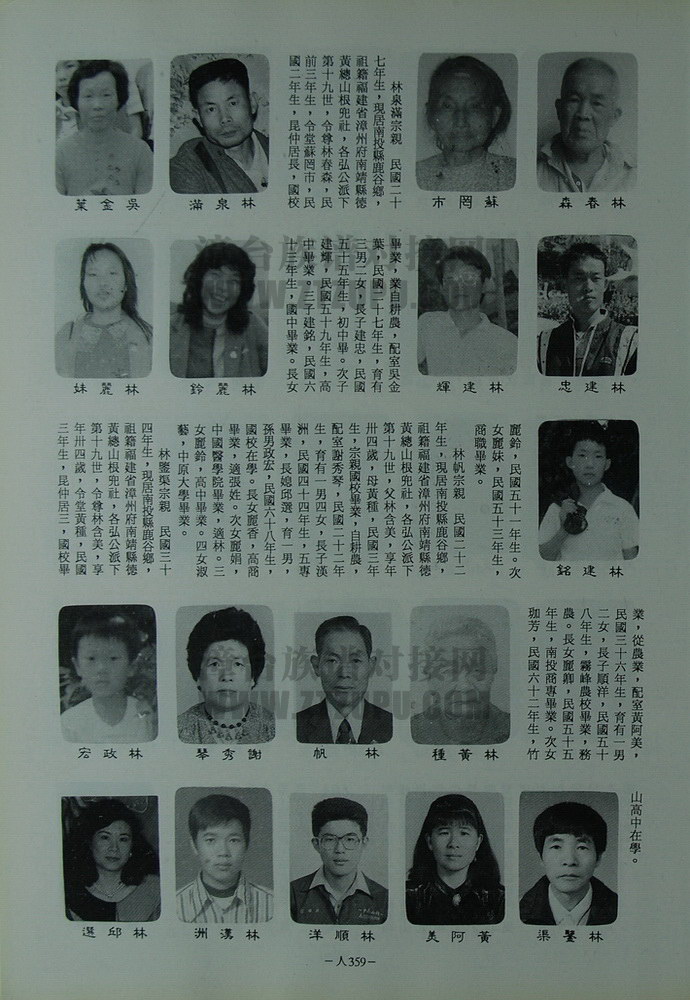 林春森
蘇罔市
林泉滿宗親　民國二十
七年生，現居南投縣鹿谷鄉，
祖籍福建省漳州府南靖縣德
黃總山根兜社，各弘公派下
第十九世，令尊林春森，民
前三年生，令堂蘇罔市，民
國二年生，昆仲居長，國校
林泉滿
吳金葉
林建忠
林建輝
畢業，業自耕農，配室吳金
葉，民國二十七年生，育有
三男二女，長子建忠，民國
五十五年生，初中畢。次子
建輝，民國五十九年生，高
中畢業。三子建銘，民國六
十三年生，國中畢業。長女
林麗鈴
林麗妹
林建銘
麗鈴，民國五十一年生。次
女麗妹，民國五十三年生，
商職畢業。
林帆宗親　民國二十二
年生，現居南投縣鹿谷鄉，
祖籍福建省漳州府南靖縣德
黃總山根兜社，各弘公派下
第十九世，父林含美，享年
卅四歲，母黃種，民國三年
生，宗親國校畢業，自耕農，
配室謝秀琴，民國二十二年
生，育有一男四女，長子漢
洲，民國四十四年生，五專
畢業，長媳邱選，育一男，
孫男政宏，民國六十八年生，
國校在學。長女麗香，高商
畢業，適張姓。次女麗娟，
中國醫學院畢業，適林。三
女麗鈴，高中畢業。四女淑
藝，中原大學畢業。
林鑒渠宗親　民國三十
四年生，現居南投縣鹿谷鄉，
祖籍福建省漳州府南靖縣德
黃總山根兜社，各弘公派下
第十九世，令尊林含美，享
年卅四歲，令堂黃種，民國
三年生，昆仲居三，國校畢
業，從農業，配室黃阿美，
民國三十六年生，育有一男
二女，長子順洋，民國五十
八年生，霧峰農校畢業，務
農。長女麗卿，民國五十五
年生，南投商專畢業。次女
珈芳，民國六十二年生，竹
林黃種
林帆
謝秀琴
林政宏
山高中在學。
林鑒渠
黃阿美
林順洋
林漢洲
林邱選
－人359－
台族谱对接网
WWW.ZTZUPU.COM